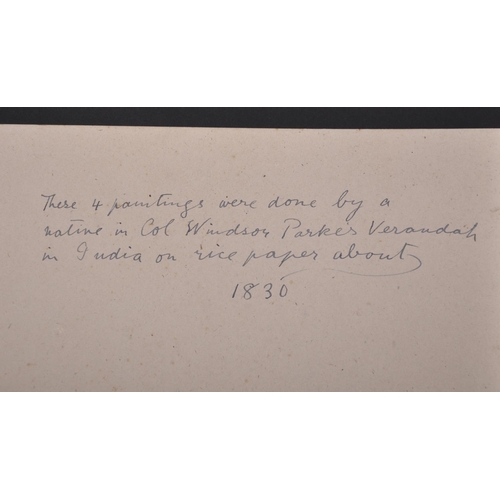 These 4 paintings were done by a
native in Col Windsor Parkers Verandah
in India on rice paper about
1830